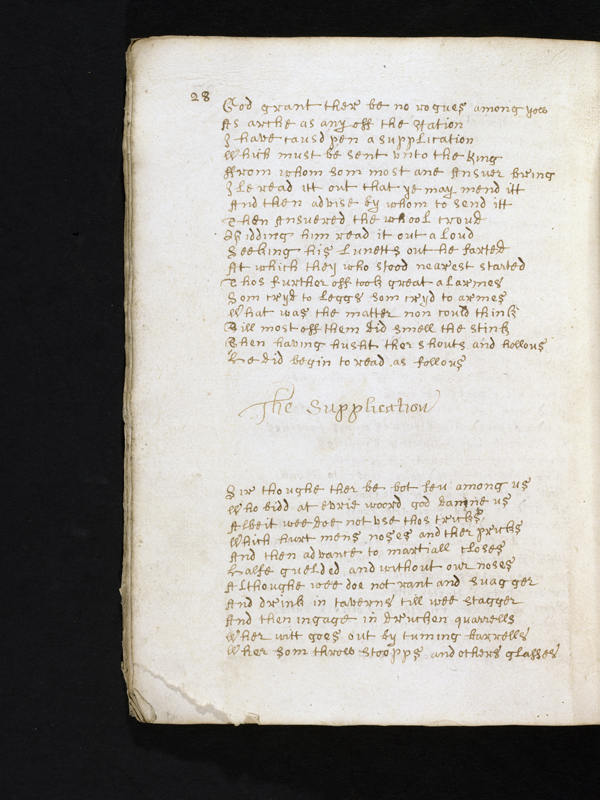 28
God grant ther be no rogues among yow
As arche as any off the Nation
I have causd pen a supplication
Which must be sent unto the King
Ffrom whom som most ane Answer bring
Ile read itt out that ye may mend itt
And then advise by whom to send itt
Then Answered the whool croud
Bidding him read it out a loud
Seeking his Lunetts out he farted
At which they who stood nearest started
Thos further off took great alarmes
Som cryd to Leggs som cryd to armes
What was the matter non could think
Till most off them did smell the stink
Then having husht ther shouts and hollous
He did begin to read as follous
The Supplication
Sir thoughe ther be bot feu among us
Who bidd at evrie woord god damne us
Albeit wee doe not use thos tricks
Which hurt mens noses and ther pricks
And then advance to martiall closes
Halfe guelded and without our noses
Althoughe wee doe not rant and suagger
And drink in taverns till wee stagger
And then ingage in drucken quarrells
Wher witt goes out by tuming barrells
Wher som throw stoopps and others glasses